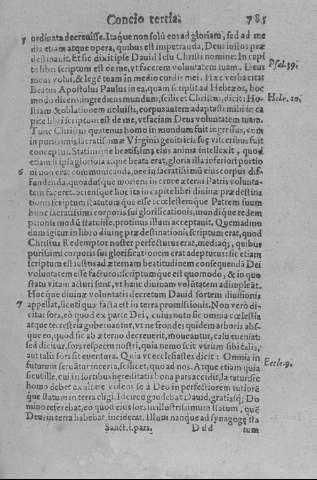 Concio tertia. 785
5 ordinata decreuisse. Itaque non solũ eos ad gloriam, sed ad me
dia etiam atque opera, quibus est impetranda, Deus insitos præ
destinauit. Et sic dixit ipse Dauid Iesu Christi nomine: In capi
te libri scriptum est de me, vt facerem voluntatem tuam. Deus Psal. 39.
meus volui, & legẽ tuam in medio cordis mei. Hæc verba citat
Beatus Apostolus Paulus in ea, quam scripsit ad Hebræos, hoc
modo dicens ingrediens mundum, scilicet Christus, dicit: Ho- Hebr. 10.
stiam & oblationem noluisti, corpus autem adaptasti mihi: in ca
pite libri scriptum est de me, vt faciam Deus voluntatem tuam.
Tunc Christus quatenus homo in mundum fuit ingressus, cum
in purissimis sacratissimæ Virginis genitricis suę visceribus fuit
conceptus. Statimque beatissima eius anima intellexit, quod
etiam si ipsis gloria qua beata erat, gloria illa inferiori portio
6 ni non erat communicanda, nec in sacratissimũ eius corpus dif-
fundenda, quoadusque moriens in cruce æterni Patris volunta-
tem faceret. Sciensque hoc ita in capite libri diuinę prædestina
tionis scriptum statutumque esse in coelestem Patrem suum
hunc sacratissimi corporis sui glorificationis, mundique redem
ptionis modũ statuisse, protinus illum acceptauit. Quemadmo
dum igitur in libro diuinę prædestinationis scriptum erat, quod
Christus Redemptor noster perfecturus erat, mediaque, quibus
purissimi corporis sui glorificationem erat adepturus: sic etiam
scriptum est iustos ad æternam beatitudinem consequendã Dei
voluntatem esse facturos: scriptumque est quomodo, & in quo
statu vitam acturi sunt, vt hanc diuinam volũtatem adimpleãt.
Hocque diuinę voluntatis decretum Dauid sortem diuisionis
7 appellat, sicuti quæ facta est in terra promissionis. Non verò di-
citur sors, eò quod ex parte Dei, cuius nutu sic omnia cœlestia
atque terrestria gubernantur, vt ne frondes quidem arboris abs-
que eo, quod sic ab æterno decreuerit, moueantur, casu eueniat:
sed dicitur, sors respectu nostri, quia nemo scit vtrum sibi talis,
aut talis sors sit euentura. Quia vt ecclesiastes dicit: Omnia in Eccle. 9.
futurum seruãtur incerta, scilicet, quo ad nos. Atque etiam quia
sicut ille, cui in sortibus hereditatis bona pars accidit, lætatur: sic
homo debet exultare videns se à Deo in perfectiorem rationẽ
que statum in terra eligi. Ideirco gaudebat Dauid, gratiasque Do
mino referebat, eo quod eius sors in illustrissimum statum, quẽ
Deus in terra habebat, inciderat. Illum nanque ad synagogę sta
Sanct. 1. pars. D d d tum